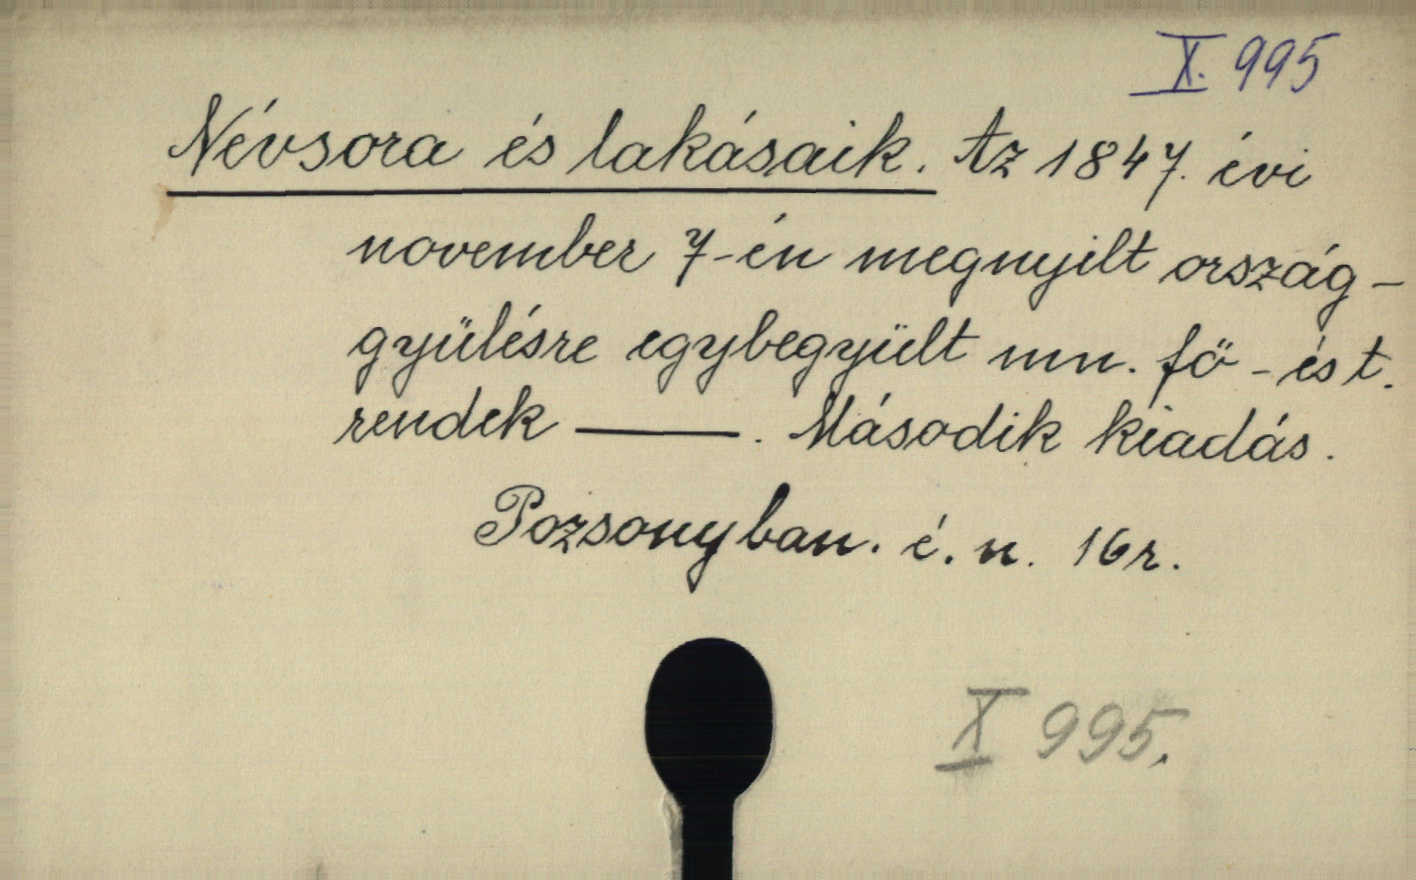 X. 995
Névsora és lakásaik. Az 1847. évi
november 7-én megnyilt ország-
gyülésre egybegyült mn. fő-és t.
rendek ——. Második kiadás.
Pozsonyban. é. n. 16r.
X 995.